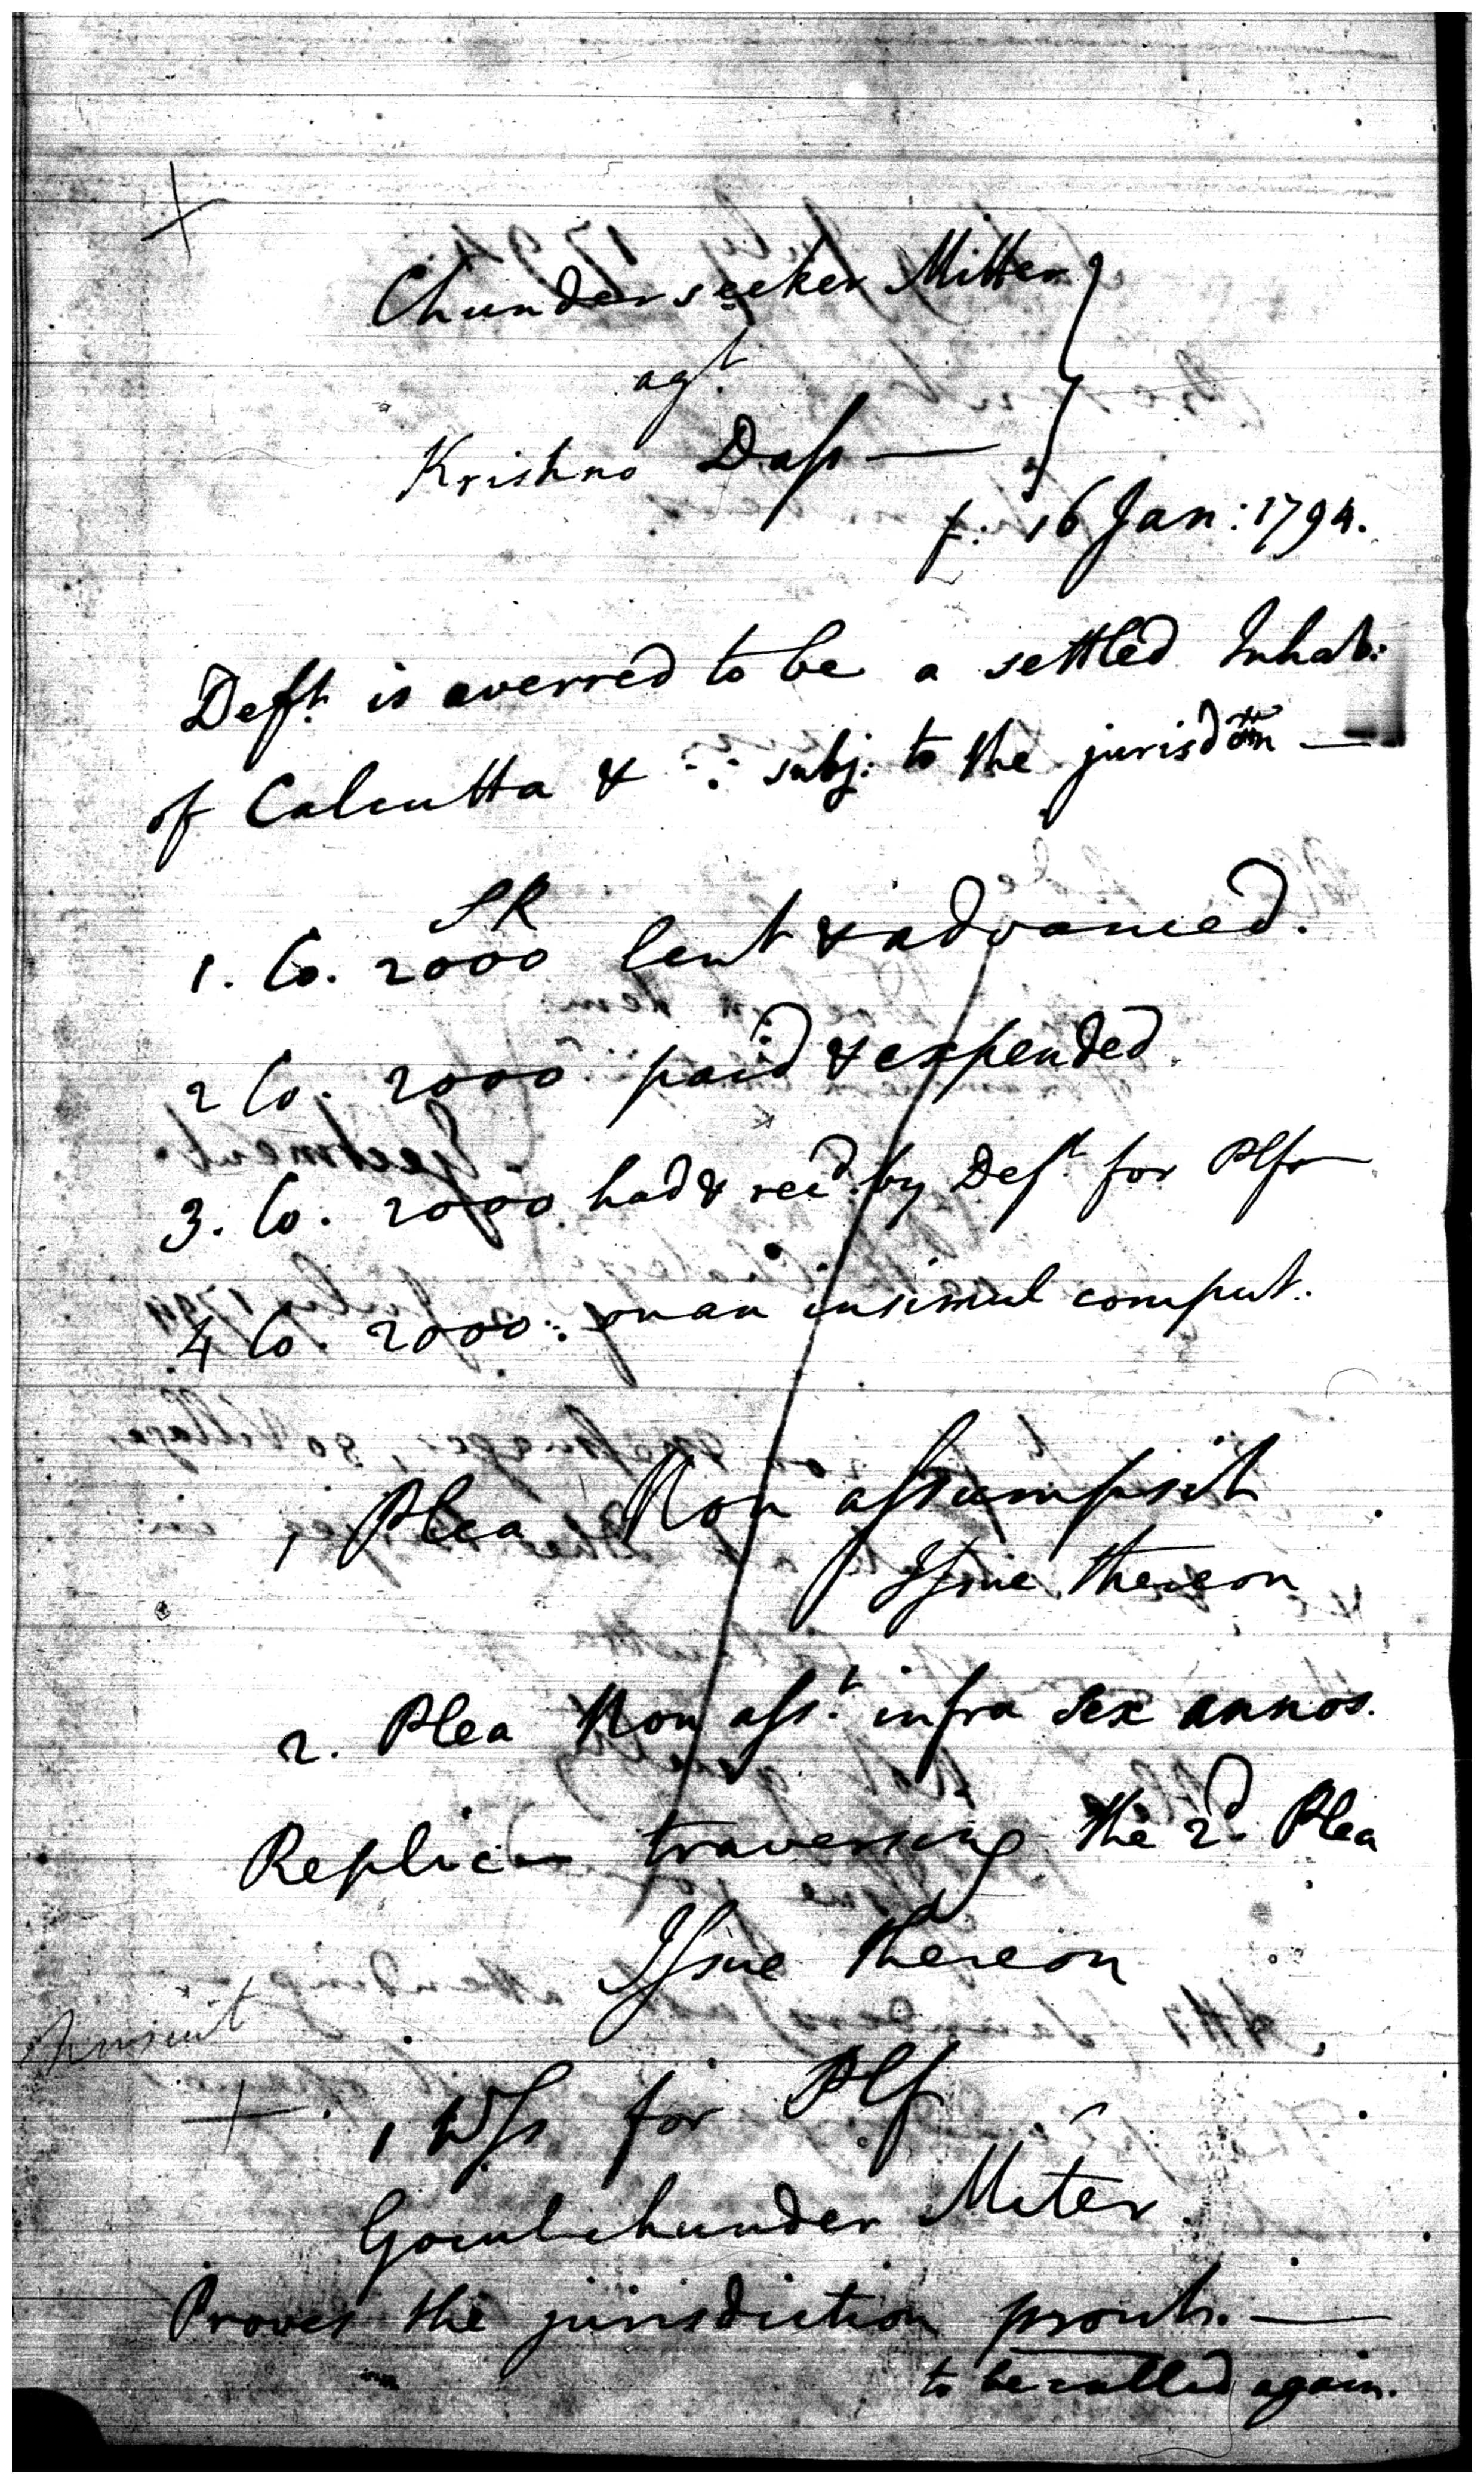 Chunderseeker Mitter
agt
Krishno Dass —
f: 16 Jan: 1794.
Deft. is averred to be a settled Inhab:
of Calcutta & ∴ subj: to the jurisdon —
SR
1. Co. 2000 lent & advanced.
2 Co. 2000 paid & expended
3. Co. 2000 had & recd. by Deft. for Plf
4 Co. 2000 : on an insimul comput.
1 Plea Non assumpsit
Issue thereon
2. Plea Non asst. infra sex annos.
Replicn traversing the 2d. Plea
Issue thereon
1 Wss for Plf
Gocul chunder Miter
Proves the jurisdiction prout. —
to be called again.